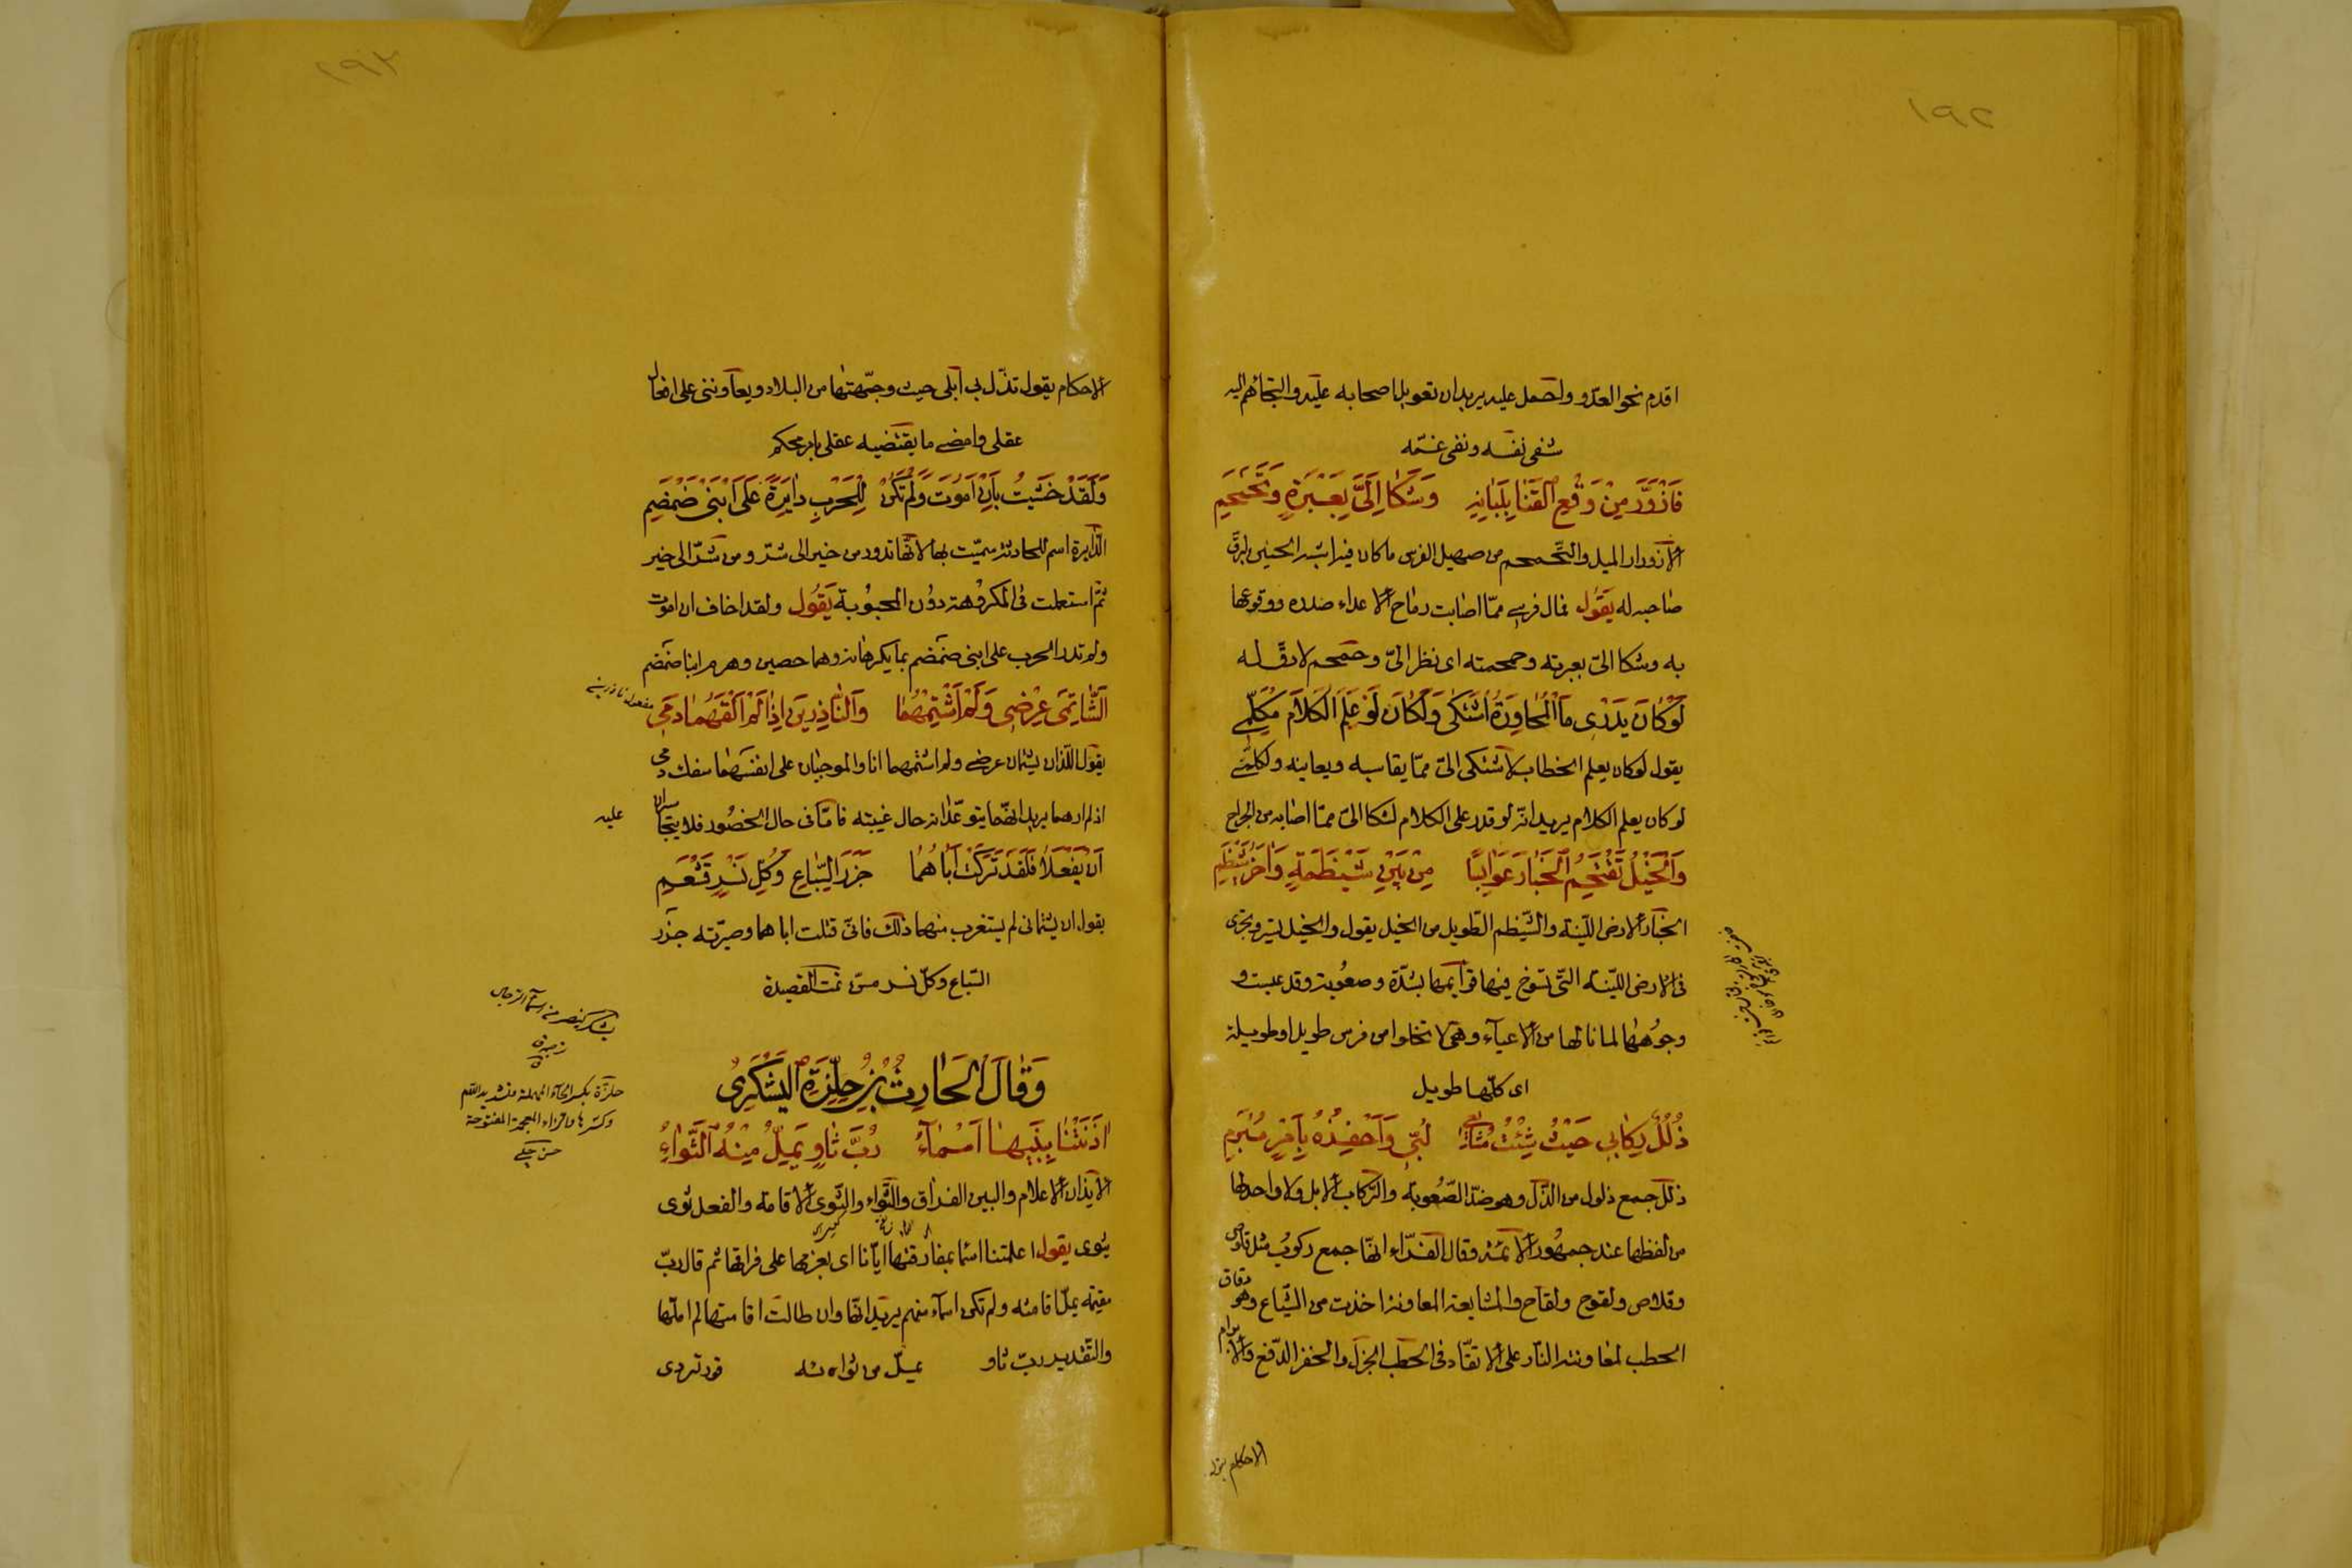 ١٩٢
اقدم نحو العدّو واحمل عليه يريد ان تعويل اصحابه عليه والتجائهم اليه
شفى نفسه ونفى غمّه
فَازْوَرَّ مِنْ وَقْعِ الْقَنٰا بِلَبٰانِهِ وَشَكٰا اِلَىَّ بِعَبْرَةٍ وَتَحَمْحُمِ
الازورار الميل والتّحمحم من صهيل الفرس ما كان فيه شبه الحنين ليرقّ
صاحبه له يَقُول فمال فرسى ممّا اصابت رماح الاعداء صدره ووقوعها
به وشكا الىّ بعبرته وحمحمته اى نظر الىّ وحمحم لارقّ له
لَوْ كٰانَ يَدْرِى مَا الْمُحٰاوَرَةُ اشْتَكٰى وَلَكٰانَ لَوْ عَلِمَ الْكَلٰامَ مُكَلِّمِى
يقول لو كان يعلم الخطاب لاشتكى الىّ ممّا يقاسيه ويعانيه ولكلّمنى
لو كان يعلم الكلام يريد انّه لو قدر على الكلام لشكا الىّ ممّا اصابه من الجراح
وَالْخَيْلُ تَقْتَحِمُ الْخَبٰارَ عَوٰابِسًا مِنْ بَيْنِ شَيْظَمَةٍ وَاٰخَرَ شَيْظَمِ
الخبار الارض الليّنة والشّيظم الطّويل من الخيل يقول والخيل تسير وتجرى
فى الارض الليّنة الّتى تسوخ فيها قوايمها بشدّة وصعُوبة وقد عبست و
وجُوهها لما نالها من الاعياء وهى لا تخلوا من فرس طويل او طويلة
اى كلّها طويل
ذُلُلٌ رِكٰابِى حَيْثُ شِئْتُ مُشٰايِعِى لُبِّى وَاَحْفِزُهُ بِاَمْرٍ مُبْرَمِ
ذلل جمع ذلول من الذّلّ وهو ضدّ الصّعُوبة والرّكاب الابل ولا واحد لها
من لفظها عند جمهُور الائمّة وقال الفرّاء انّها جمع ركوب مثل قلوص
وقلاص ولقوح ولقاح والمشايعة المعاونة اخذت من الشّياع وهو دقاق
الحطب لمعاونته النّار على الاتقّاد فى الحطب الجزل والحفز الدّفع والابرام
الاحكام يقول
الاحكام يقول تذّل لى ابلى حيث وجّهتها من البلاد ويعاوننى على افعالى
عقلى وامضى ما يقتضيه عقلى بامر محكم
وَلَقَدْ خَشِيتُ بِاَنْ اَمُوتَ وَلَمْ تَكُنْ لِلْحَرْبِ دٰايِرَةٌ عَلَى ابْنَىْ ضَمْضَمِ
الدّايرة اسم للحادثة سميّت بها لانّها تدور من خير الى شرّ ومن شرّ الى خير
ثمّ استعملت فى المكروهة دوُن المحبوُبة يَقُول ولقد اخاف ان اموت
ولم تدر الحرب على ابنى ضمضم بما يكرهانه وهما حصين وهرم ابنا ضمضم
اَلشّٰاتِمَىْ عِرْضِى وَلَمْ اَشْتِمْهُمٰا وَالنّٰاذِرَيْنِ اِذٰا لَمْ اَلْقَهُمٰا دَمِى
يقول اللّذان يشتمان عرضى ولم اشتمهما انا والموجبان على انفسهما سفك دمى
اذ لم ارهما يريد انّهما يتوعّدانه حال غيبته فامّا فى حال الحضُور فلا يتجاسران
عليه
اَنْ يَفْعَلٰا فَلَقَدْ تَرَكْتُ اَبٰاهُمٰا جَزَرَ السِّبٰاعِ وَكُلِّ نَسْرٍ قَشْعَمِ
يقول ان يشتمانى لم يستغرب منهما ذلك فانّى قتلت اباهما وصيّرته جزر
السّباع وكلّ نسر مسنّ تمت القصيدة
يشكر كينصر من اسماء الرجال
حلزة بكسر الحاء المهملة وتشديد اللام
وكسرها والزاء المعجمة المفتوحة
حسن چلبى
وَقٰالَ الْحٰارِثُ بْنُ حِلِّزَةَ الْيَشْكَرِىُّ
اٰذَنَتْنٰا بِبَيْنِهٰا اَسْمٰاءُ رُبَّ ثٰاوٍ يُمَلُّ مِنْهُ الثَّوٰاءُ
الايذان الاعلام والبين الفراق والثّواء والثّوى الاقامة والفعل ثوى
يثوى يقول اعلمتنا اسما بمفارقتها ايّانا اى بعزمها على فراقها ثم قال ربّ
مقيم يملّ اقامته ولم تكن اسماء منهم يريد انّها وان طالت اقامتها لم املّها
والتّقدير ربّ ثاو يملّ من ثوائه